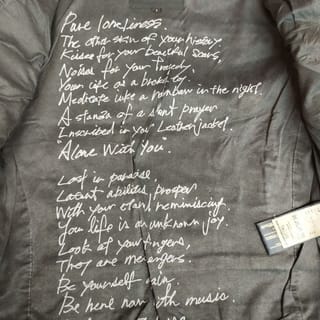 Pure loneliness.
The other skin of your history.
Kisses for your beautiful scars,
Noises for your tragedy.
Your life as a
Meditate like a rainbow in the night.
A stanza of a silent prayer
Inscribed in your Leather jacket.
"Alone With You".
Lost in paradise
Latent abilities prosper
With your stand reminiscing.
You life is an unknown joy.
Look at your fingers,
They are messengers.
Be yourself calm.
Be here now with music.